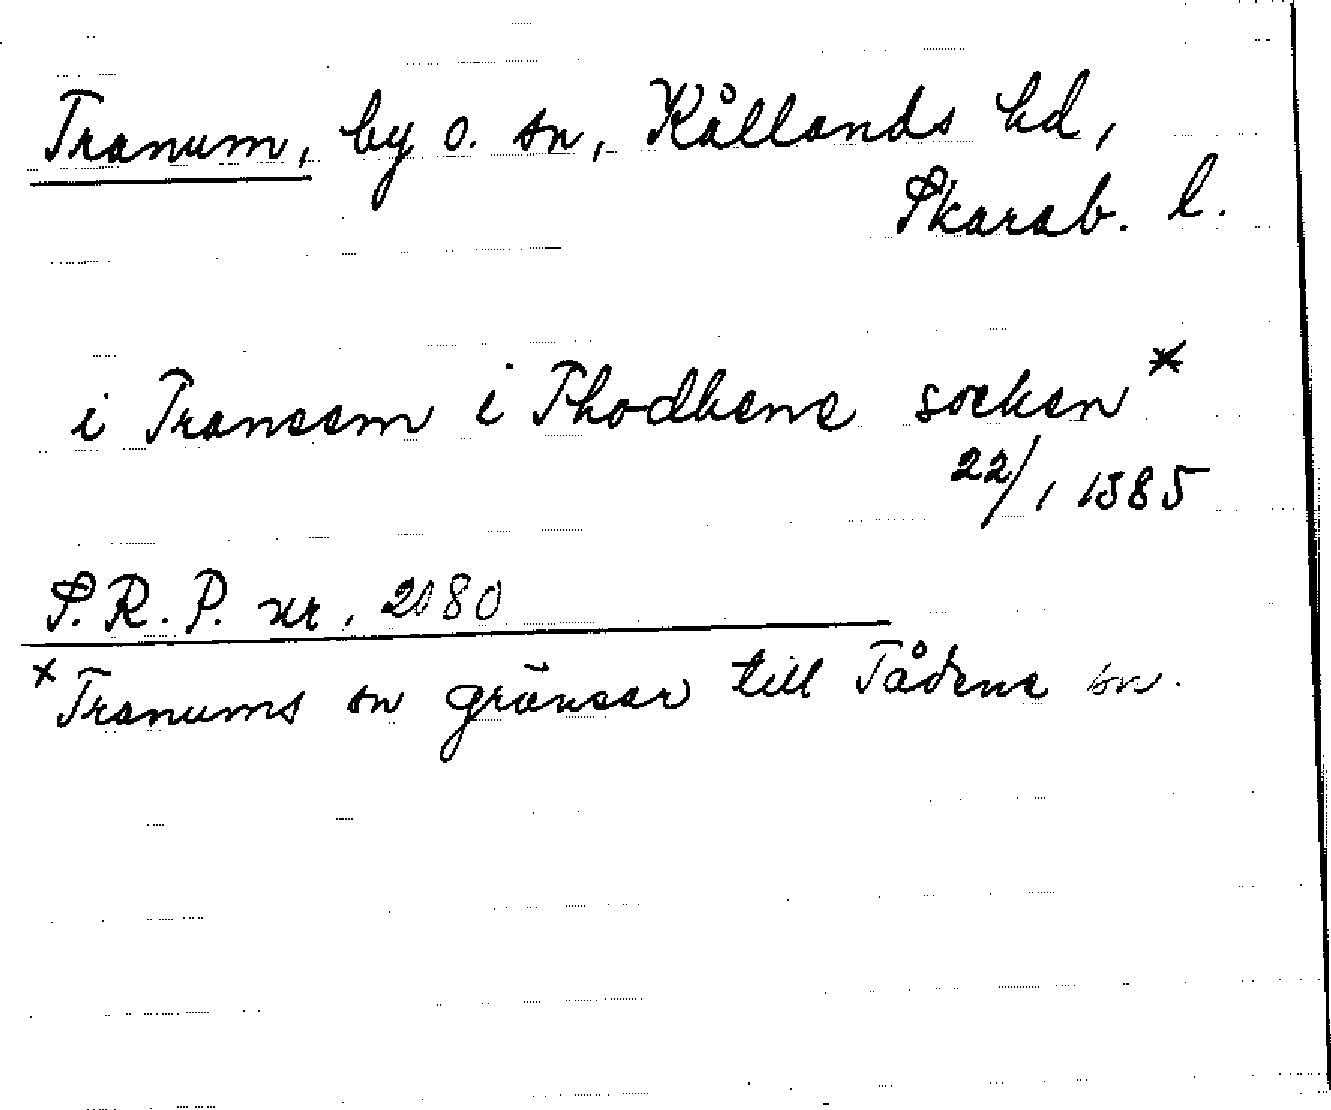 Tranum, by o. sn, Kållands hd,
Skarab. l.
i Traneem i Thodhene socken*
22/1 1385
S.R.P. nr. 2080
x Tranums sn gränsar till Tådene sn.